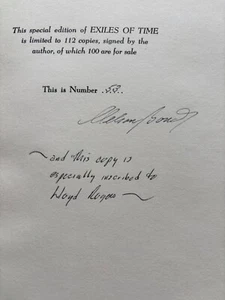 This special edition of EXILES OF TIME
is limited to 112 copies, signed by the
author, of which 100 are for sale
This is Number
Nelson Bond
~and this copy is
especially inscribed to
Lloyd